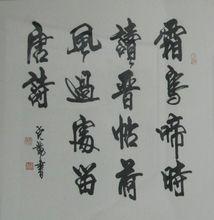 霜鳥啼時
讀晋帖荷
風過處留
唐詩
書